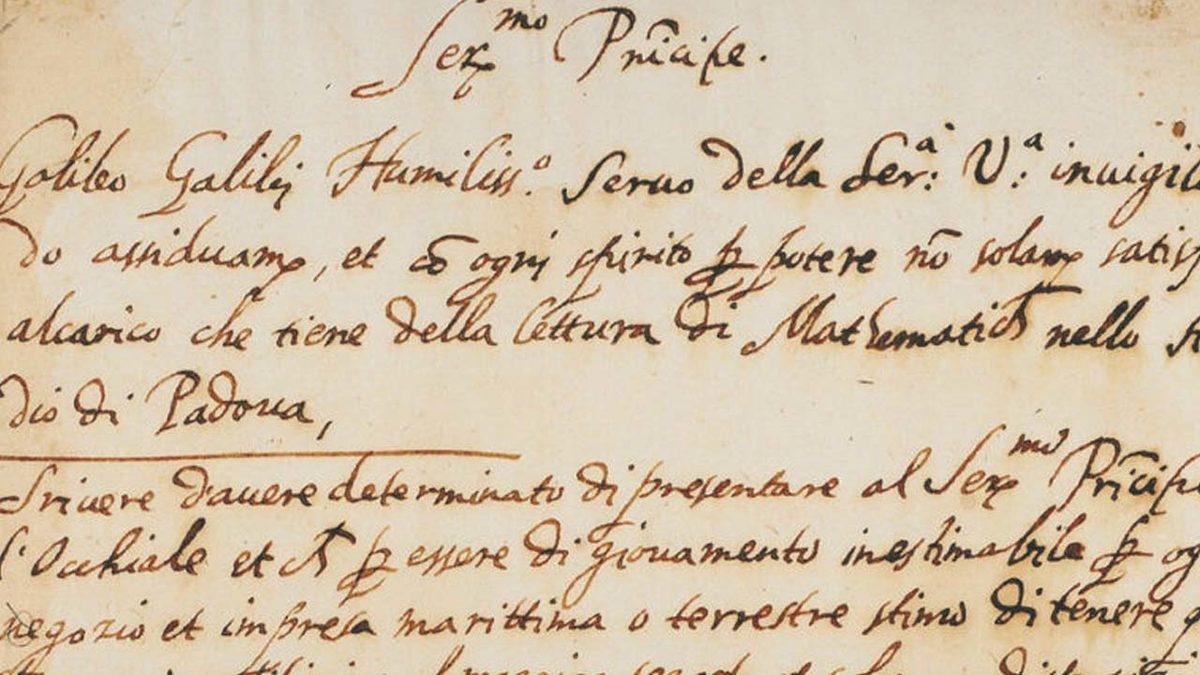 Ser.mo Prīcipe.
Galileo Galilej Humiliss.o Seruo della Ser:a V:a inuigil
do assiduam., et cō ogni spirito p potere nō solam. satisf
alcarico che tiene della lettura di Mathematich nello st
dio di Padoua,
Sriuere d'auere determinato di presentare al Ser.mo Prīcipe
l'Occhiale et ch p essere di giouamento inestimabile p og
negozio et impresa marittima o terrestre stimo di tenere